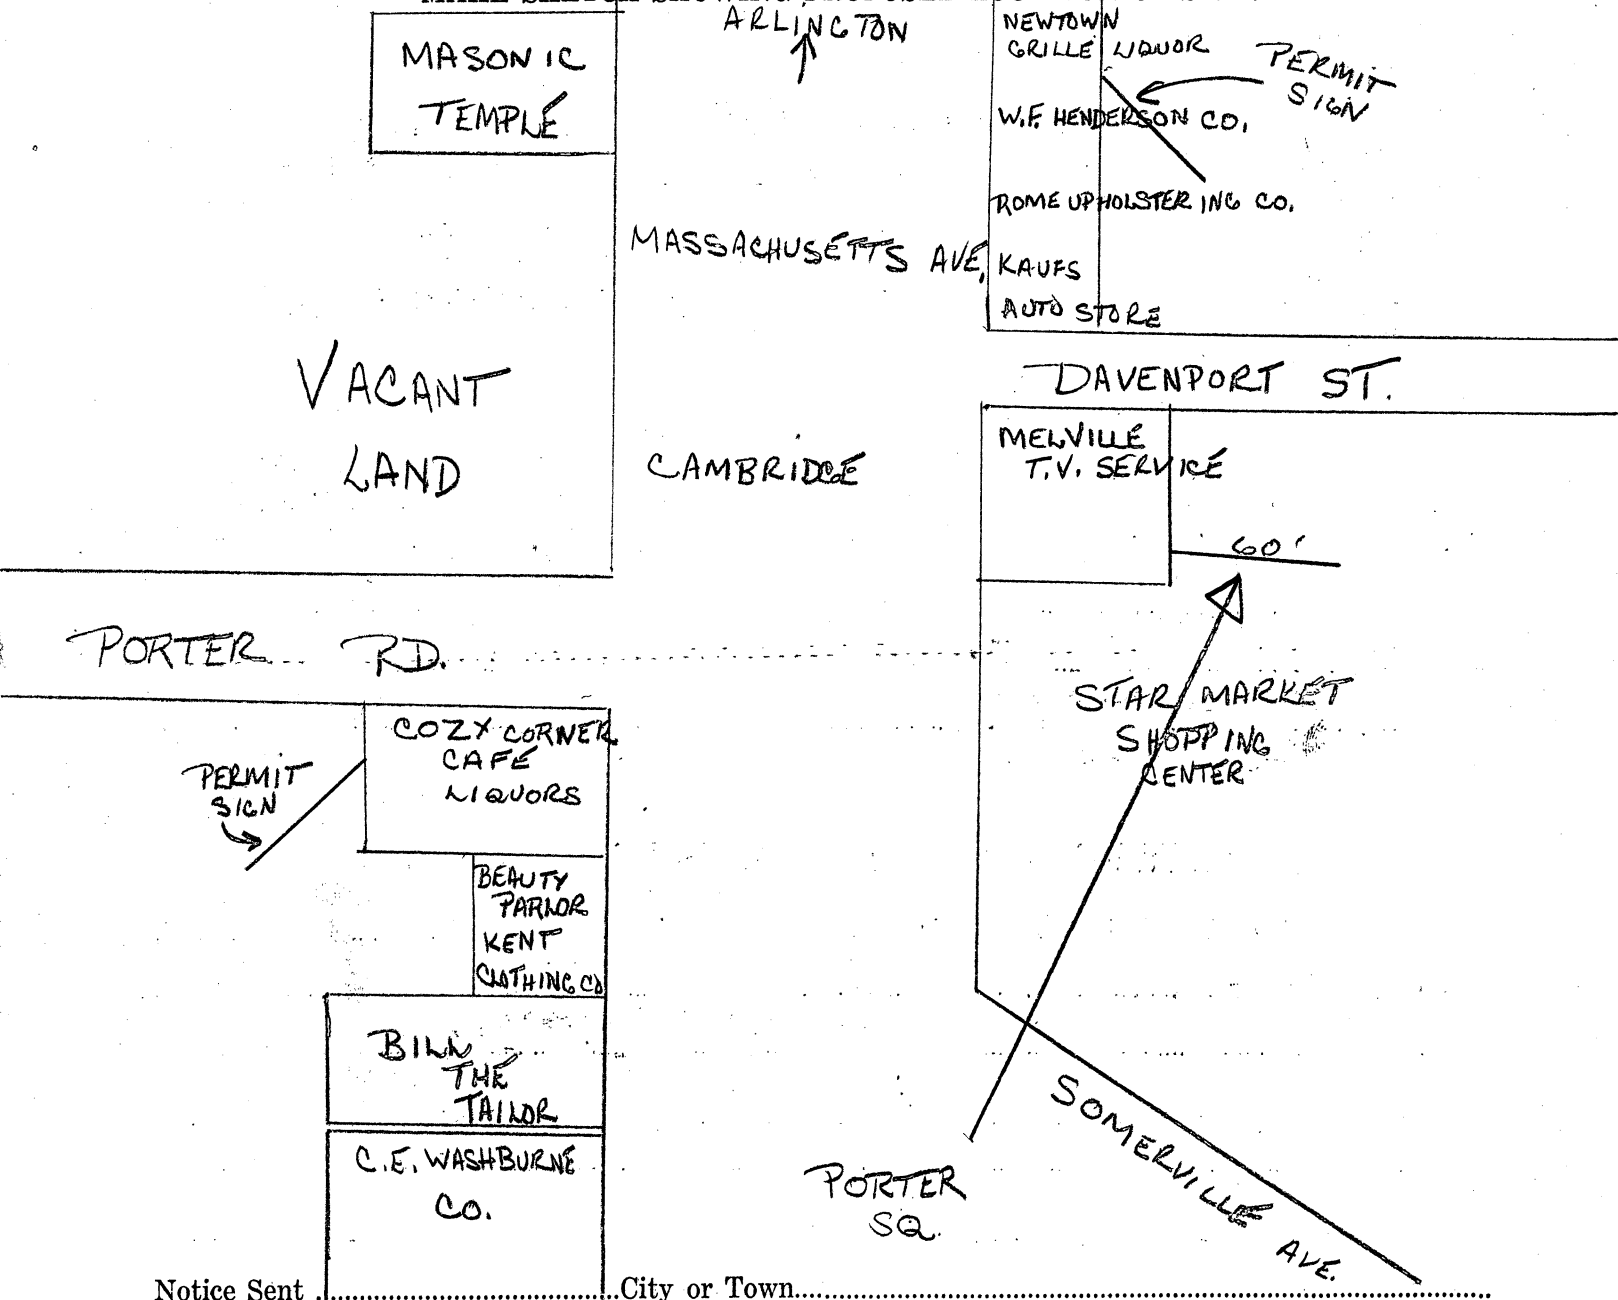 ARLINGTON
MASONIC
TEMPLE
NEWTOWN
GRILLE LIQUOR
PERMIT
SIGN
W.F. HENDERSON CO.
ROME UPHOLSTERING CO.
MASSACHUSETTS AVE.
KAUFS
AUTO STORE
VACANT
LAND
DAVENPORT ST.
CAMBRIDGE
MELVILLE
T.V. SERVICE
60'
PORTER RD.
STAR MARKET
SHOPPING
CENTER
COZY CORNER
CAFÉ
LIQUORS
PERMIT
SIGN
BEAUTY
PARLOR
KENT
CLOTHING CO
BILL
THE
TAILOR
C.E. WASHBURNE
CO.
PORTER
SQ.
SOMERVILLE AVE.
Notice Sent ........ City or Town........